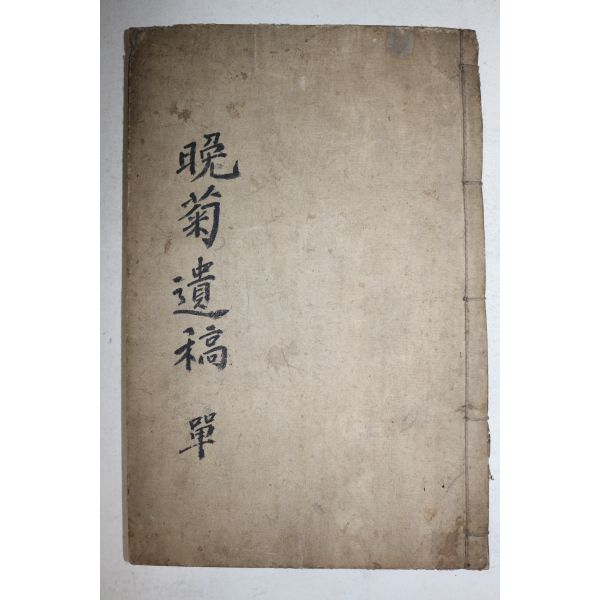 晩菊遺稿 單